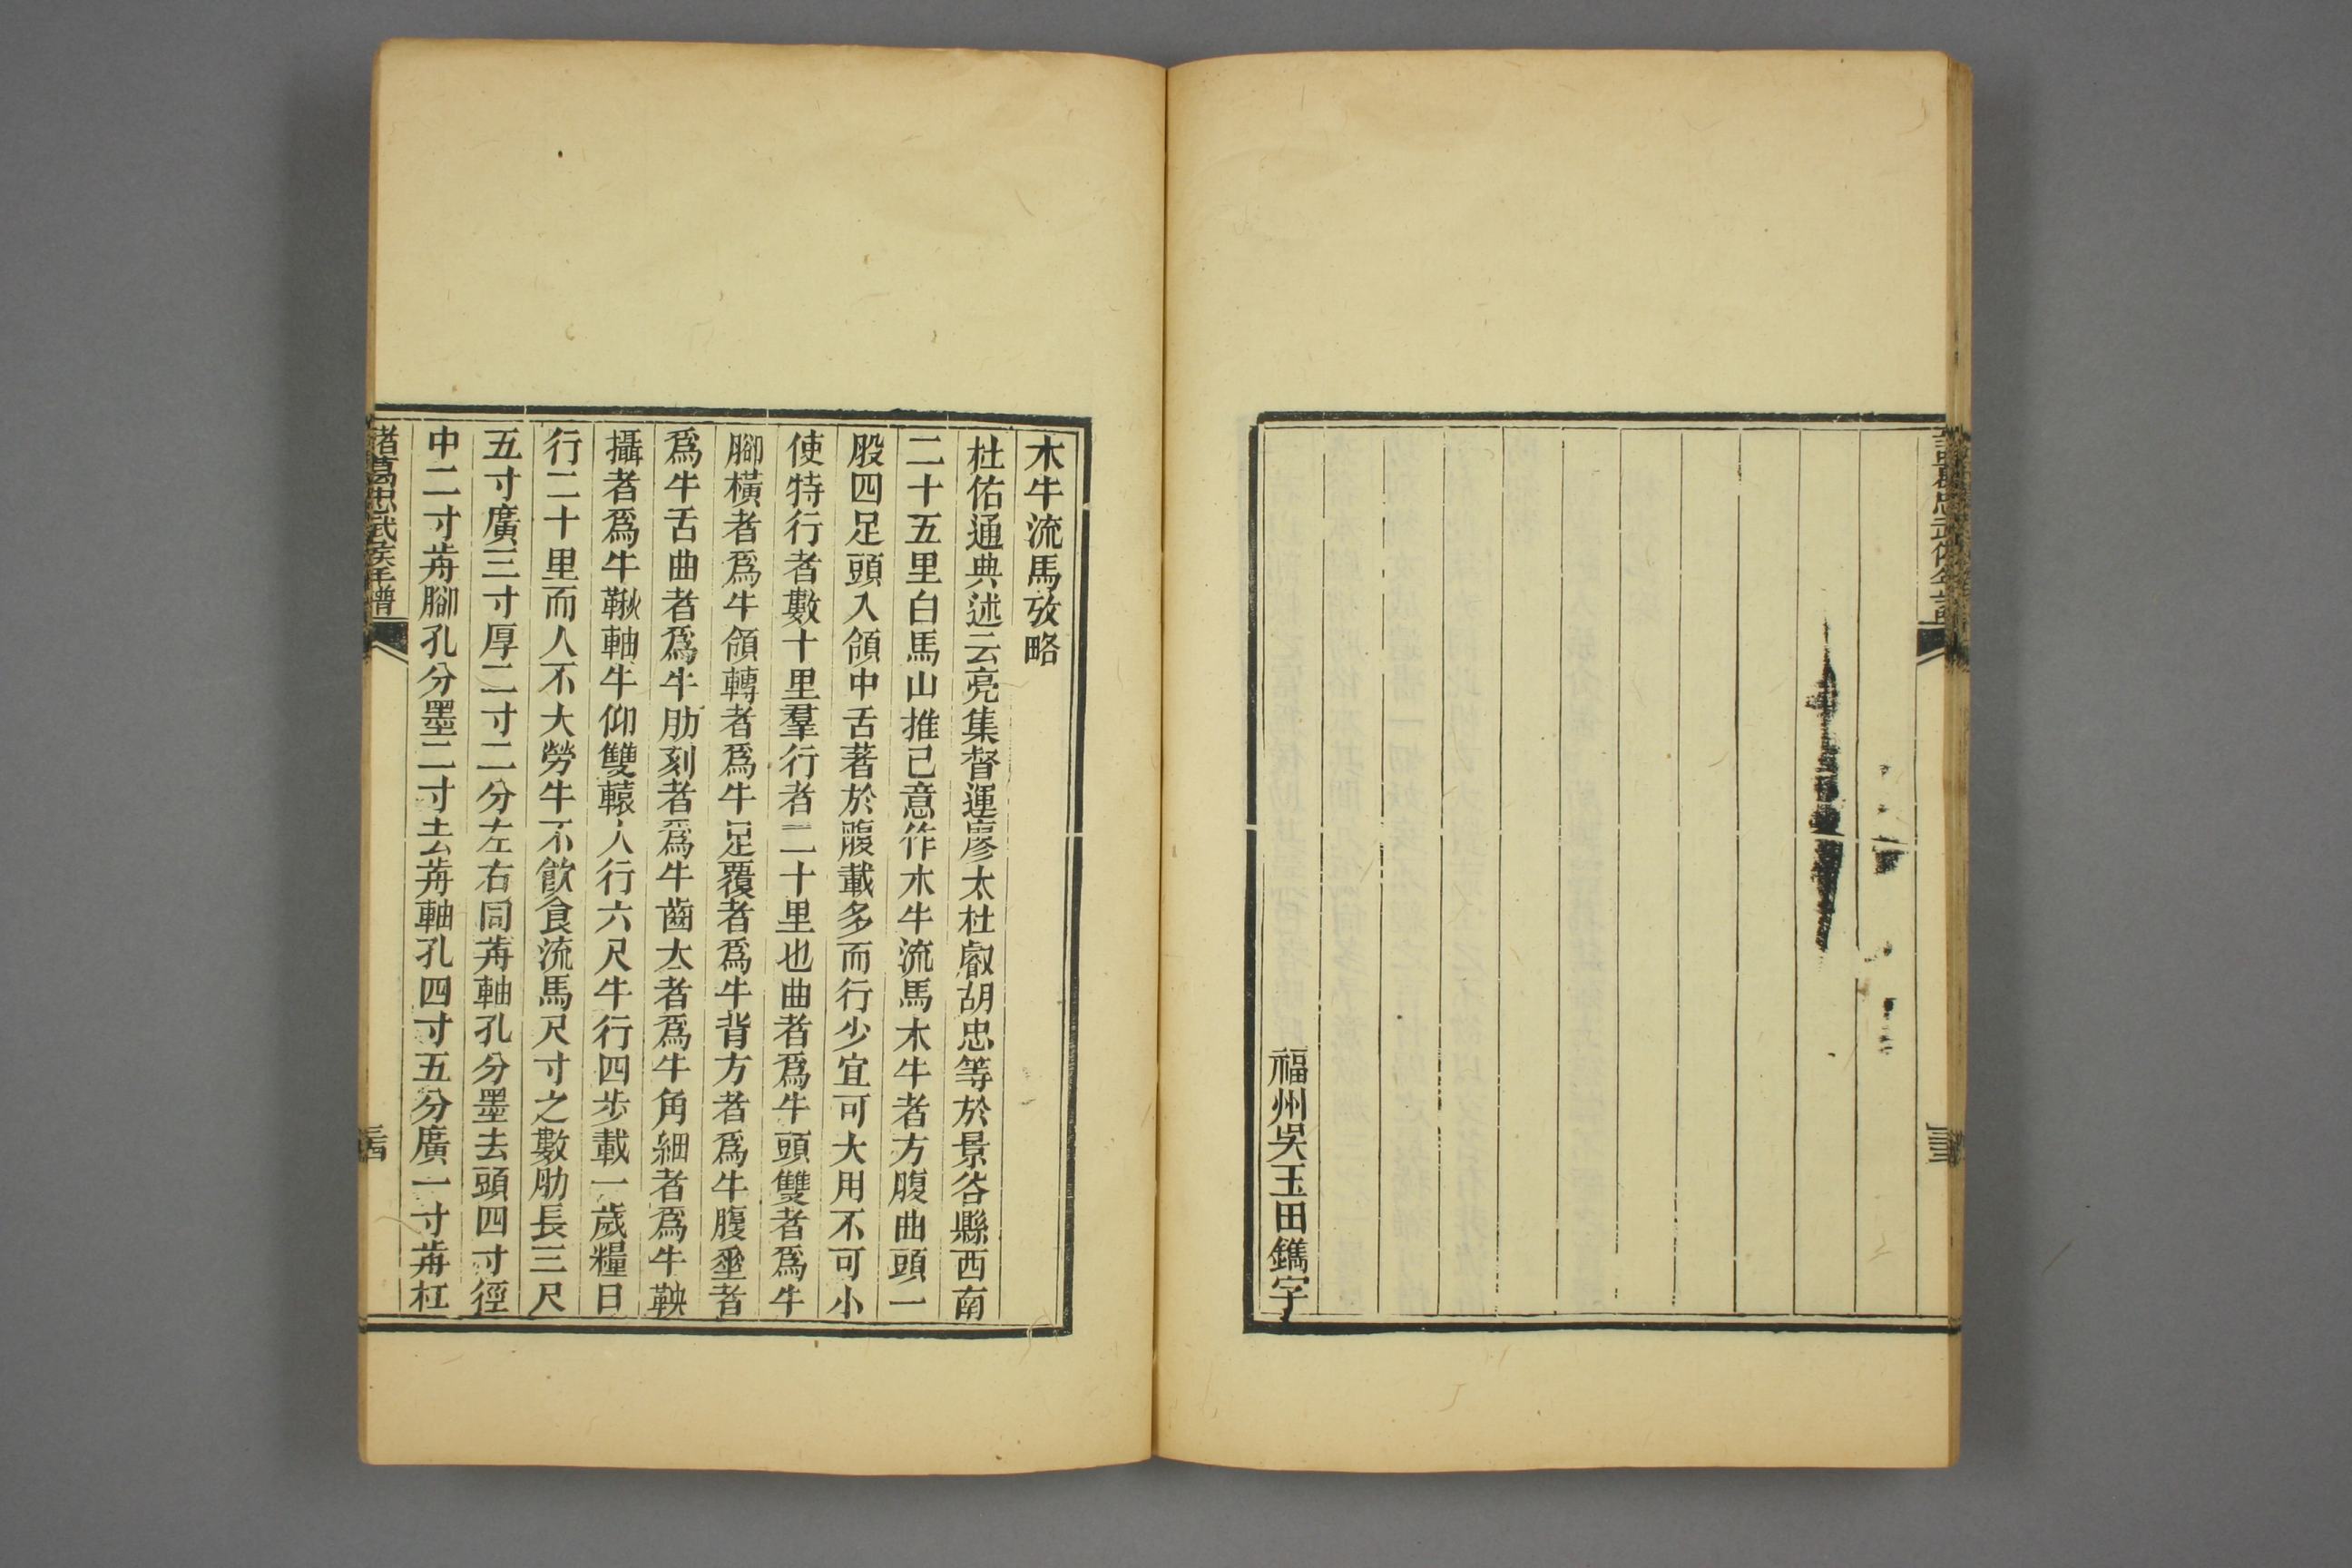 諸葛忠武侯年譜
三三
福州吳玉田鐫字
木牛流馬攷略
杜佑通典述云亮集督運廖太杜叡胡忠等於景谷縣西南
二十五里白馬山推己意作木牛流馬木牛者方腹曲頭一
股四足頭入領中舌著於腹載多而行少宜可大用不可小
使特行者數十里羣行者二十里也曲者爲牛頭雙者爲牛
腳橫者爲牛領轉者爲牛足覆者爲牛背方者爲牛腹埀者
爲牛舌曲者爲牛肋刻者爲牛齒大者爲牛角細者爲牛鞅
攝者爲牛鞦軸牛仰雙轅人行六尺牛行四步載一歲糧日
行二十里而人不大勞牛不飲食流馬尺寸之數肋長三尺
五寸廣三寸厚二寸二分左右同歬軸孔分墨去頭四寸徑
中二寸歬腳孔分墨二寸去歬軸孔四寸五分廣一寸歬杠
諸葛忠武侯年譜
三四